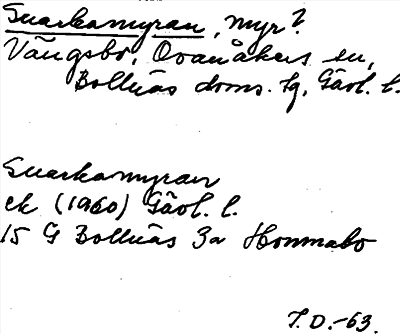 Snarkamyran, myr?
Vängsbo, Ovanåkers sn,
Bollnäs doms. tg, Gävl. l.
Snarkamyran
ek (1960) Gävl. l.
15 G Bollnäs 3a Hommabo
T.D.-63.